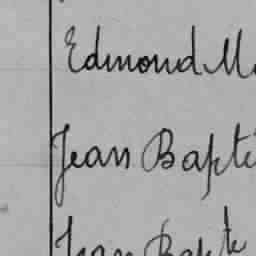 Edmond M
Jean Bapti
Jean Bapte